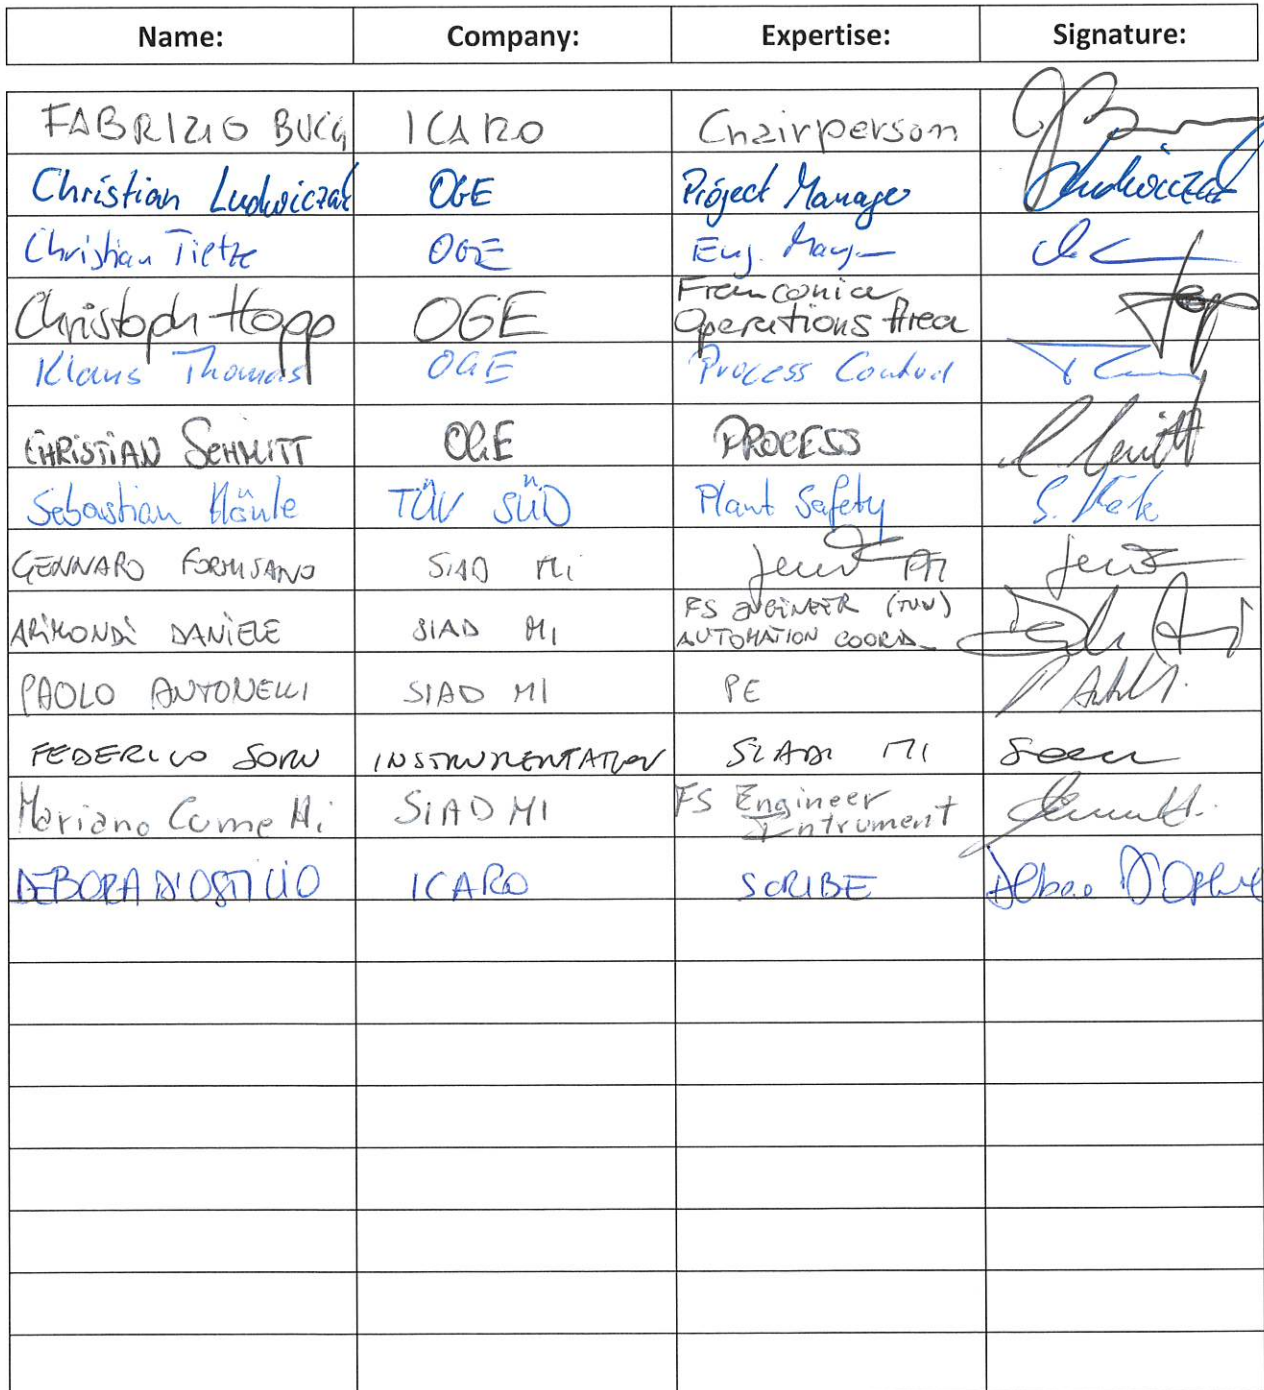 Name: Company: Expertise: Signature:
FABRIZIO BUCCI ICARO Chairperson
Christian Ludwiczak OGE Project Manager Ludwiczak
Christian Tietze OGE Eng.
Christoph Hopp OGE Franconia
Operations Area Hopp
Klaus Thomas OGE Process Control
CHRISTIAN SCHMITT OGE PROCESS
Sebastian TÜV SÜD Plant Safety
GENNARO FORMISANO SIAD Mi
ARIMONDI DANIELE SIAD MI FS ENGINEER (TUV)
AUTOMATION COORD.
PAOLO ANTONELLI SIAD MI PE
FEDERICO SORU INSTRUMENTATION SIAD MI Soru
Mariano Cometti SIAD MI FS Engineer
Intrument
DEBORA D'OSTILIO ICARO SCRIBE